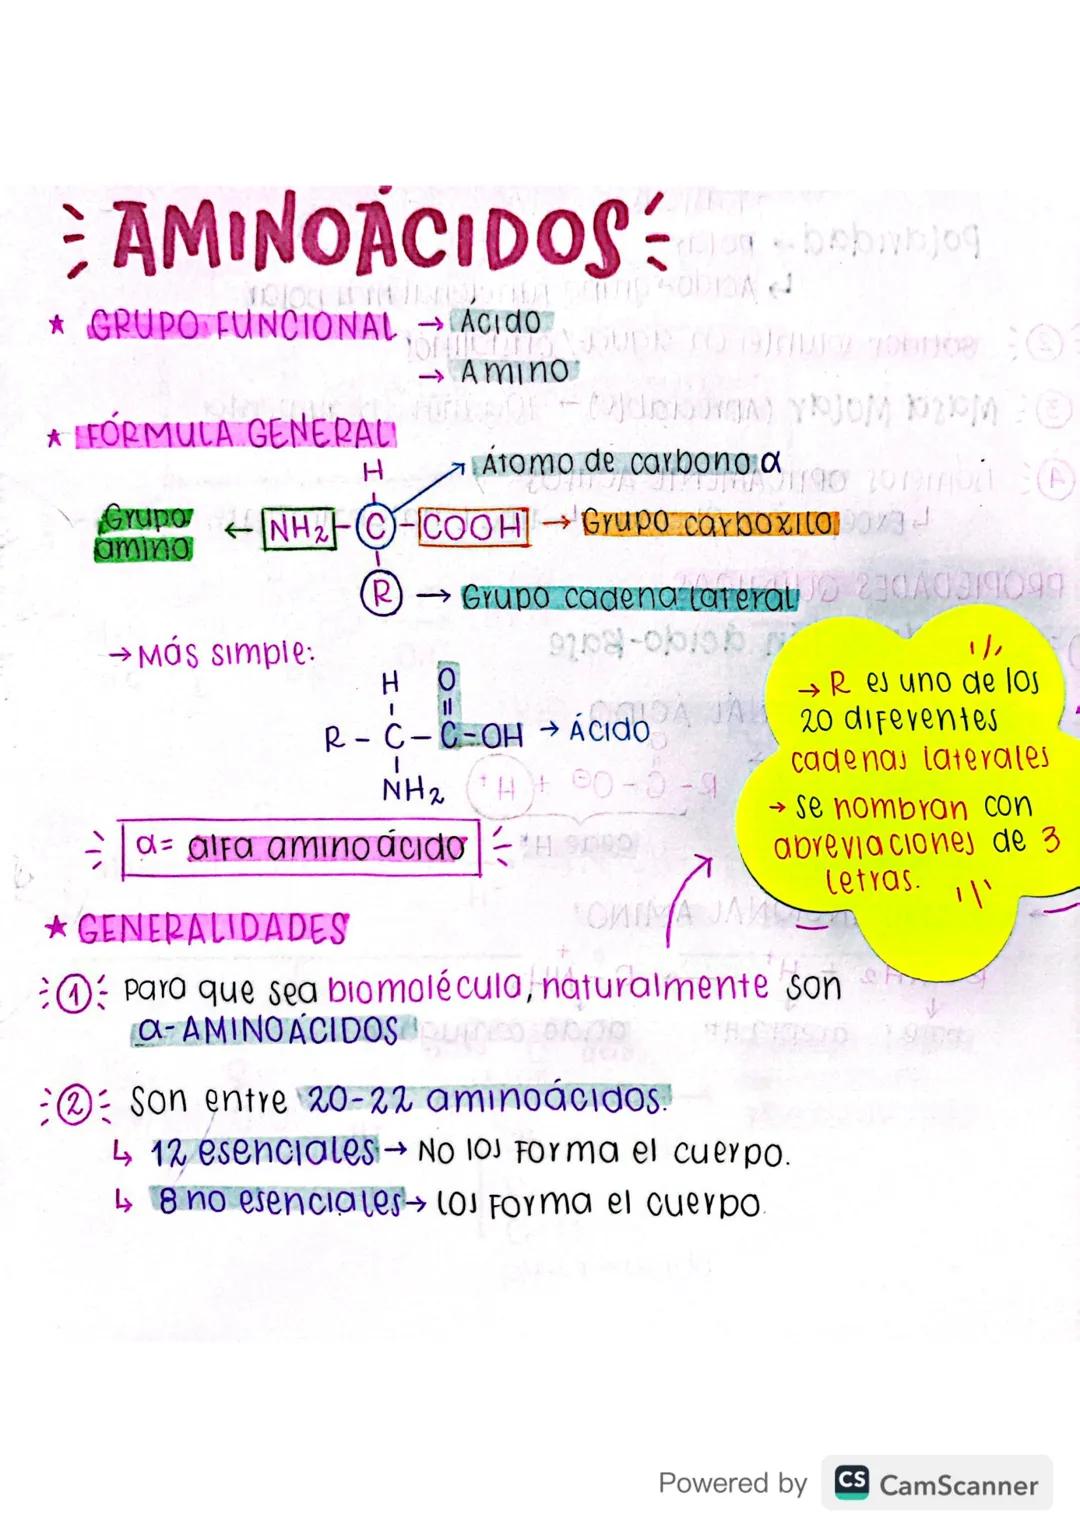 AMINOÁCIDOS
★ GRUPO FUNCIONAL → Ácido
→ Amino
★ FÓRMULA GENERAL
H
Átomo de carbono α
Grupo amino ← NH2 - C - COOH → Grupo carboxilo
R → Grupo cadena lateral
→ Más simple:
H O
R - C - C - OH → Ácido
NH2
α = alfa aminoácido
→ R es uno de los
20 diferentes
cadenas laterales
→ se nombran con
abreviaciones de 3
letras.
★ GENERALIDADES
① para que sea biomolécula, naturalmente son
α-AMINOÁCIDOS
② Son entre 20-22 aminoácidos.
↳ 12 esenciales → No los forma el cuerpo.
↳ 8 no esenciales → los forma el cuerpo.
Powered by CS CamScanner